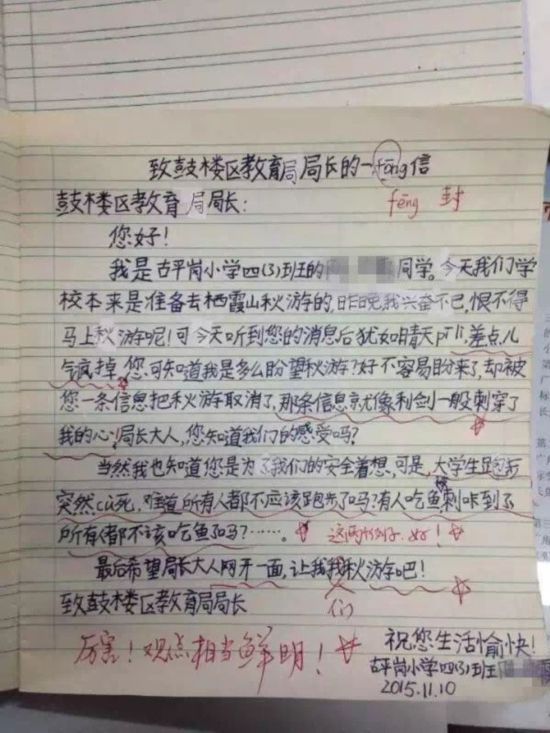 致鼓楼区教育局局长的一fēng信
fēng 封
鼓楼区教育局局长:
您好!
我是古平岗小学四(3)班的 同学。今天我们学
校本来是准备去栖霞山秋游的,昨晚我兴奋不已,恨不得
马上秋游呢!可今天听到您的消息后犹如晴天pī lì,差点儿
气疯掉。您可知道我是多么盼望秋游?好不容易盼来了,却被
您一条信息把秋游取消了,那条信息就像利剑一般刺穿了
我的心!局长大人,您知道我们的感受吗?
当然我也知道您是为了我们的安全着想,可是,大学生跑步
突然cù死,难道所有人都不应该跑步了吗?有人吃鱼被刺咔到了,
所有人都不该吃鱼了吗?……。
这两个例子好!
最后希望局长大人网开一面,让我我秋游吧!
们
致鼓楼区教育局局长
祝您生活愉快!
厉害!观点相当鲜明!
古平岗小学四(3)班
2015.11.10